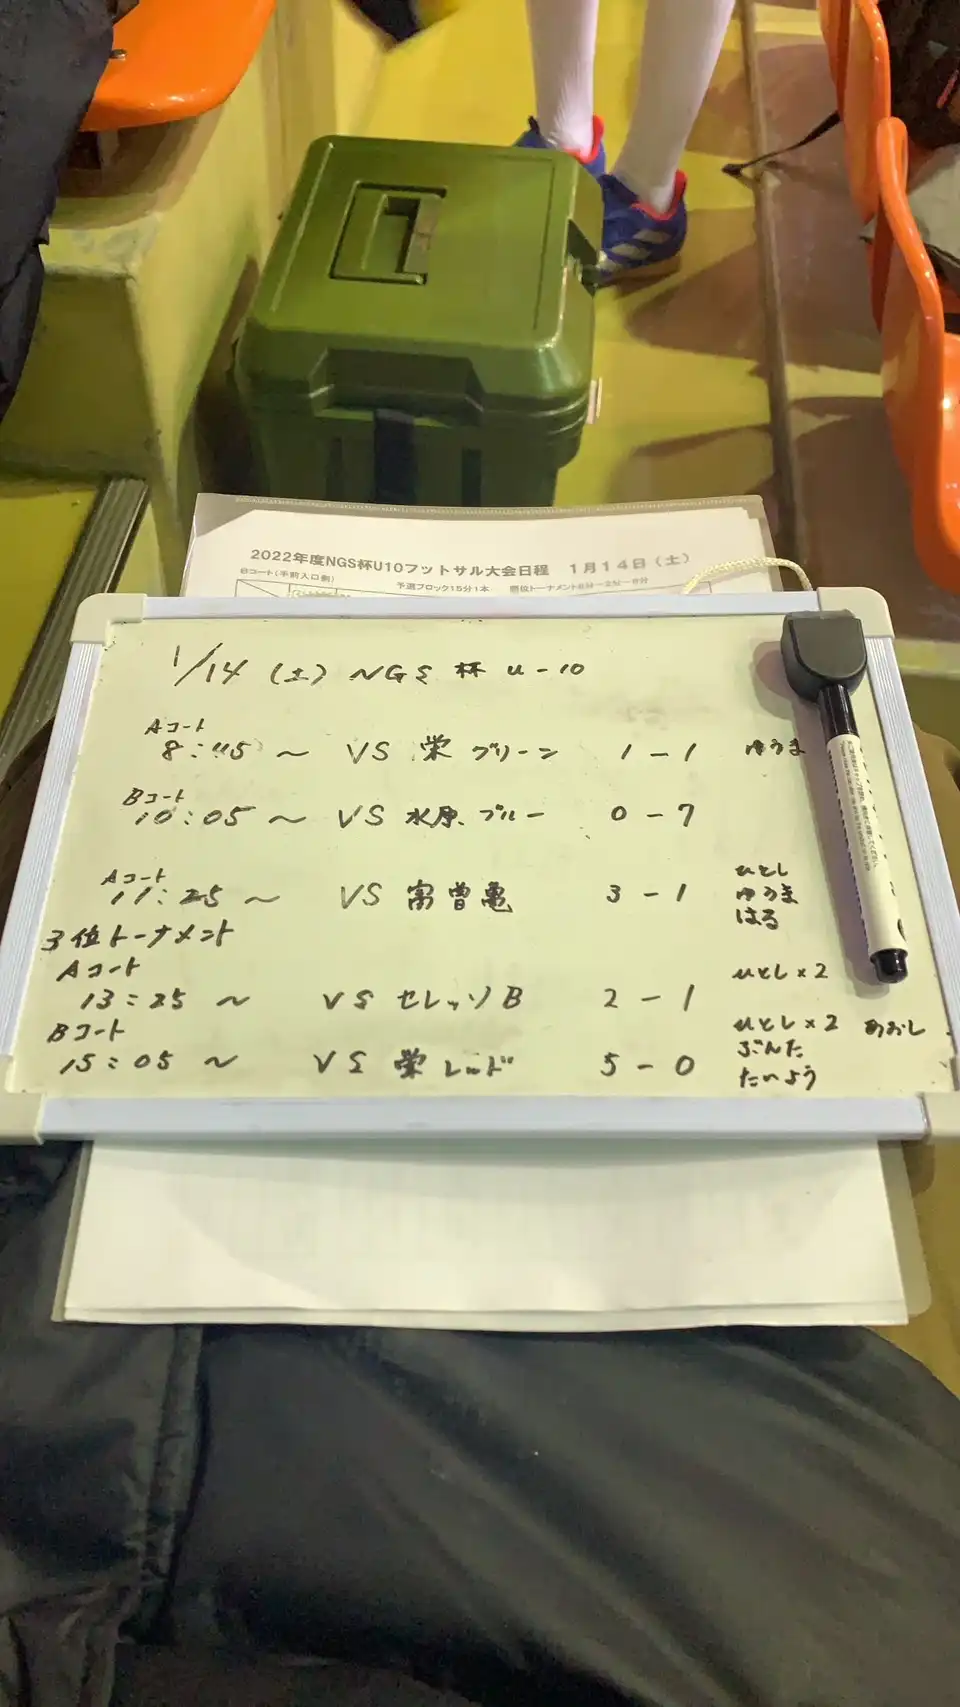 2022年度NGS杯U10フットサル大会日程 1月14日（土）
Bコート(手前入口側) 予選ブロック15分1本 順位トーナメント8分ー2分ー8分
1/14 (土) NGS 杯 U-10
Aコート
8:45 〜 VS 栄グリーン 1-1 ゆうま
Bコート
10:05 〜 VS 水原ブルー 0-7
Aコート
11:25 〜 VS 富曽亀 3-1 ひとし
ゆうま
はる
3位トーナメント
Aコート
13:25 〜 VS セレッソB 2-1 ひとし×2
Bコート
15:05 〜 VS 栄レッド 5-0 ひとし×2 あおし
ぶんた
たいよう